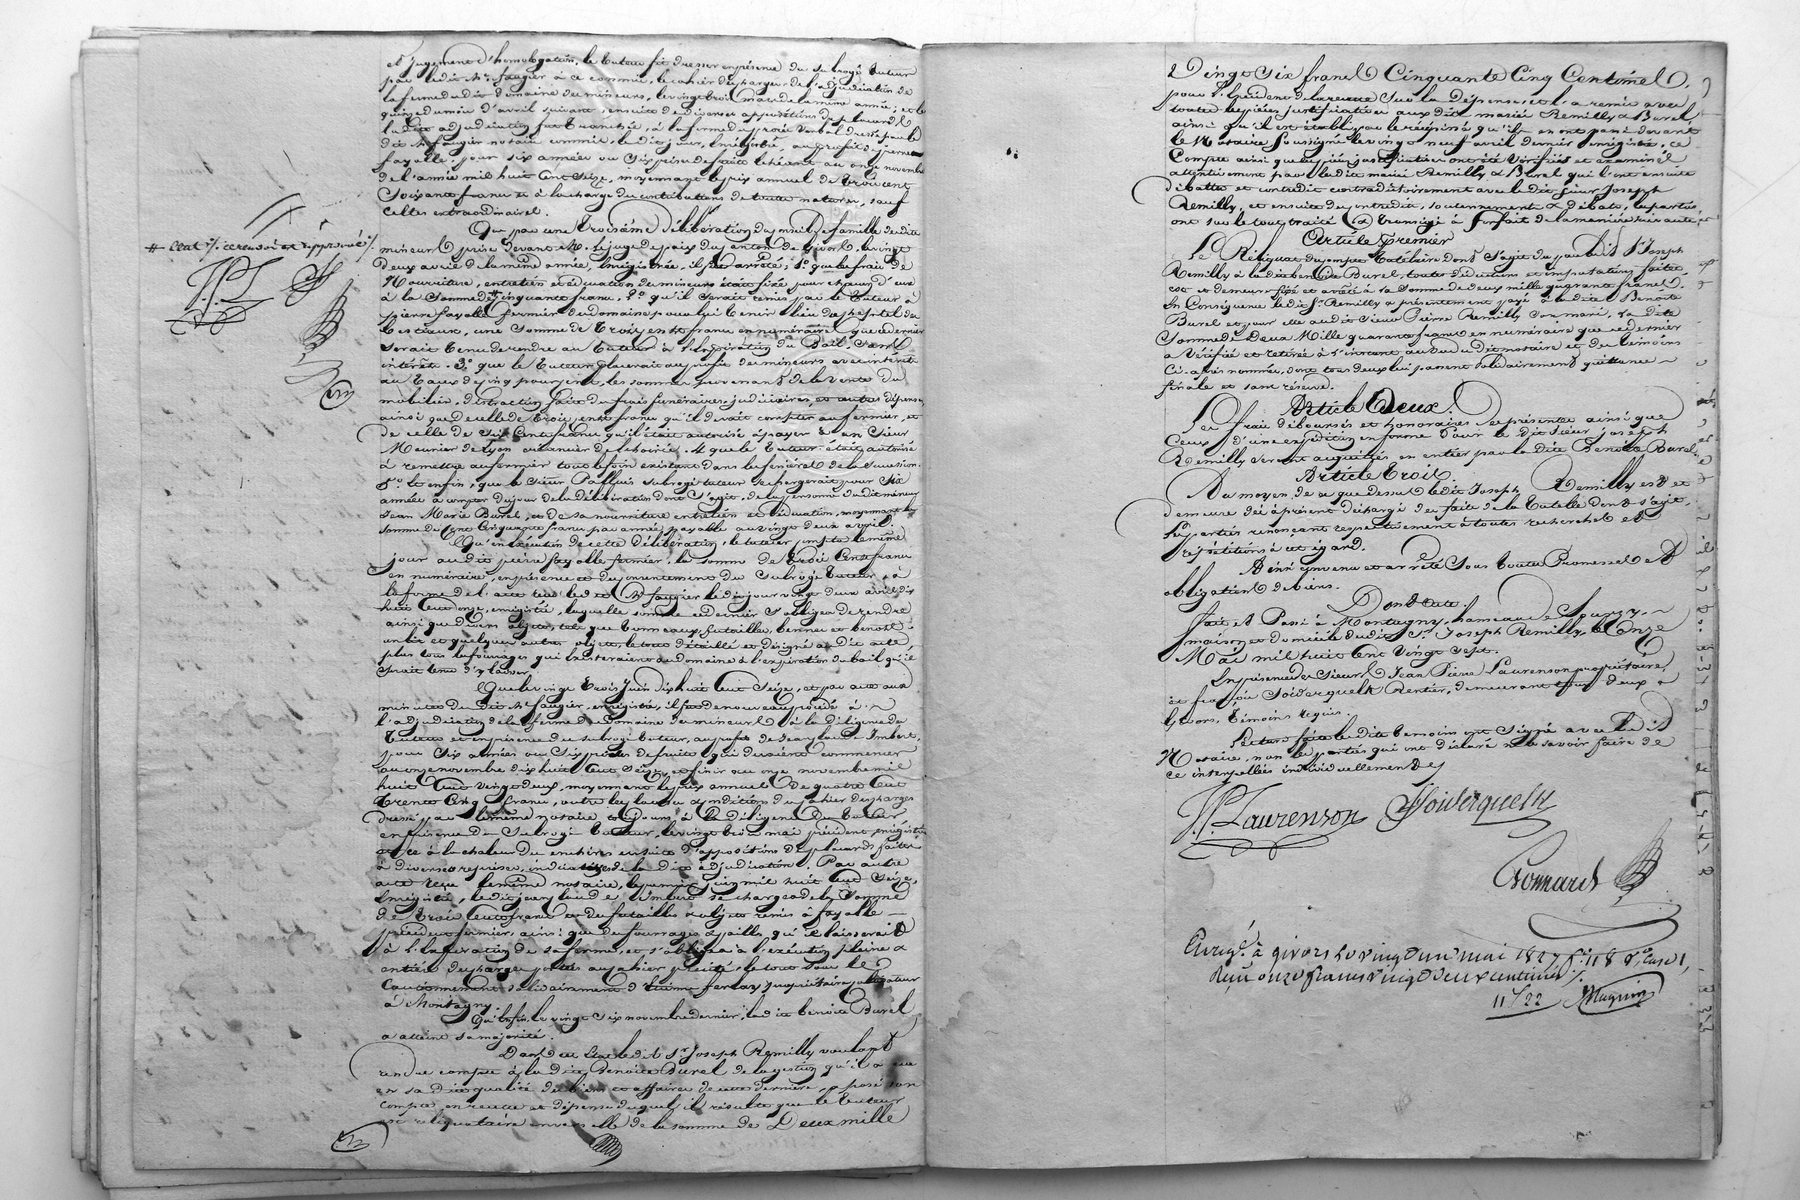 et jugement d'homologation, le tuteur fit dresser en présence du subrogé tuteur
par ledit Me faugier à ce commis, le cahier des charges de l'adjudication de
la ferme dudit domaine des mineurs, le vingt trois mars de la même année, et le
quinze du mois d'avril suivant, ensuite de diverses appositions de placards
la dite adjudication fut tranchée, à la forme du procès verbal dressé par le
dit Me faugier notaire commis, ledit jour, enregistré, au profit de pierre
fayolle, pour six années ou six prises de fruits à onze novembre
de l'année mil huit cent seize, moyennant le prix annuel de trois cent
soixante francs et à la charge des contributions de toute nature, sauf
celles extraordinaires.
Que par une troisième délibération du conseil de famille desdits
mineurs, prise devant M. le juge de paix du canton de Givors, le vingt
deux avril de la même année, enregistrée, il fut arrêté, 1o que les frais de
Nourriture, entretien et éducation des mineurs était fixé pour chacun d'eux
à la somme de # cinquante francs, 2o qu'il serait remis par le tuteur à
pierre fayolle fermier du domaine pour lui tenir lieu de cheptel de
bestiaux, une somme de trois cents francs en numéraire que ce dernier
serait tenu de rendre au tuteur à l'expiration du Bail, sans
intérêts. 3o que le tuteur placerait au profit des mineurs avec intérêts
au taux de cinq pour cent, les sommes provenant de la vente du
mobilier, distraction faite des frais funéraires, judiciaires et autres dépenses
ainsi que de celle de trois cents francs qu'il devait compter au fermier, et
de celle de six cents francs qu'il était autorisé à payer à un sieur
Meunier de Lyon créancier de l'hoirie. 4o que le tuteur était autorisé
à remettre au fermier tout le foin existant dans les fenières de la succession.
5o et enfin, que le sieur subrogé tuteur se chargerait pour six
années à compter du jour de la délibération dont s'agit, de la personne du dit mineur
Jean Marie Burel, et de sa nourriture entretien et éducation, moyennant la
somme de cent cinquante francs par année, payable au vingt deux avril.
Qu'en exécution de cette délibération, le tuteur compta le même
jour au dit pierre fayolle fermier, la somme de trois cents francs
en numéraire, en présence et du consentement du subrogé tuteur, à
la forme de l'acte reçu ledit Me faugier ledit jour vingt deux avril dix
huit cent onze, enregistré, laquelle somme ce dernier s'obligea de rendre
ainsi que divers objets, tels que tonneaux, futailles, bennes et benots
un lit et quelques autres objets, le tout détaillé et désigné au dit acte
plus tous les fourrages qui existeraient au domaine à l'expiration du bail qu'il
serait tenu d'y laisser.
Que le vingt trois Juin dix huit cent seize, et par acte aux
minutes du dit Me faugier, enregistré, il fut de nouveau procédé à
l'adjudication de la ferme du Domaine des mineurs à la diligence du
tuteur et en présence du subrogé tuteur, au profit de Jean Claude Imbert,
pour six années ou six prises de fruits qui devaient commencer
au onze novembre dix huit cent seize, et finir au onze novembre mil
huit cent vingt deux, moyennant le prix annuel de quatre cent
trente cinq francs, outre les clauses et conditions du cahier des charges
dressé par le même notaire et à la diligence du tuteur
en présence du subrogé tuteur, le vingt trois mai précédent, enregistré
et ce à la chaleur des enchères ensuite d'appositions de placards faites
à diverses reprises, indicatives de la dite adjudication. Par autre
acte reçu le même notaire, le mil huit cent seize,
enregistré, ledit Jean Claude Imbert se chargea de la somme
de trois cents francs et des futailles & objets remis à fayolle
précédent fermier, ainsi que des fourrages & pailles qu'il laisserait
à l'expiration de sa ferme, et s'obligea à l'exécution pleine &
entière des charges portées au cahier précité, le tout sous le
cautionnement solidairement d'Etienne ferlay propriétaire cultivateur
à Montagny.
Qu'enfin, le vingt six novembre dernier, ladite benoîte Burel
a atteint sa majorité.
Dans cet état ledit Sr Joseph Remilly voulant
rendre compte à la dite Benoîte Burel de la gestion qu'il a eue
en sa dite qualité des biens et affaires de cette dernière, a posé son
compte en recette et dépense duquel il résulte que le tuteur
est reliquataire envers elle de la somme de Deux mille
# cent %. renvoi approuvé %.
J.P.L.
Vingt six francs Cinquante Cinq Centimes,
pour l'excédent de la recette sur la dépense, et l'a remis avec
toutes les pièces justificatives aux dits mariés Remilly & Burel
ainsi qu'il est établi par le récépissé qu'ils en ont passé devant
le Notaire soussigné le vingt neuf avril dernier enregistré, ce
Compte ainsi que les pièces justificatives ont été vérifiés et examinés
attentivement par les dits mariés Remilly & Burel qui l'ont ensuite
débattu et contredit contradictoirement avec le dit sieur Joseph
Remilly, et ensuite des contredits, soutennements & débats, les parties
ont sur le tout traité & transigé à forfait de la manière suivante;
Article Premier
Le Reliquat du compte tutélaire dont s'agit du par ledit Sr Joseph
Remilly à la dite benoîte Burel, toutes déductions et imputations faites
est et demeure fixé et arrêté à la somme de deux mille quarante francs,
En Conséquence le dit Sr Remilly a présentement payé à la dite Benoîte
Burel et pour elle au dit sieur Pierre Remilly son mari, la dite
Somme de Deux Mille quarante francs en numéraire que ce dernier
a vérifié et retirée à l'instant au vu du dit notaire et des témoins
Ci-après nommés, dont tous deux lui passent solidairement quittance
finale et sans réserve.
Article Deux.
Les frais déboursés et honoraires des présentes ainsi que
Ceux d'une expédition en forme pour le dit sieur joseph
Remilly seront acquittés en entier par la dite Benoîte Burel.
Article Trois.
Au moyen de ce que dessus ledit Joseph Remilly est et
demeure dès à présent déchargé du fait de la tutelle dont s'agit,
les parties renonçant respectivement à toutes recherches et
répétitions à cet égard.
Ainsi convenu et arrêté sous toutes Promesses et
obligations de biens.
Dont acte.
fait et Passé à Montagny, hameau de Sourzy,
maison et domicile du dit Sr Joseph Remilly, le Onze
Mai mil huit cent vingt sept.
En présence des sieurs Jean Pierre Laurenson propriétaire,
et françois Soiderquelk Rentier, demeurant tous deux à
Givors, témoins requis.
Lecture faite les dits témoins ont signé avec le dit
Notaire, non les parties qui ont déclaré ne le savoir faire de
ce interpellées individuellement %
J.P. Laurenson Soiderquelk
Cronnard
Enrgé. à givors le vingt un mai 1827 fo 118 Vo. Case 1,
Reçu onze francs vingt deux centimes %.
11 f 22 Magnin